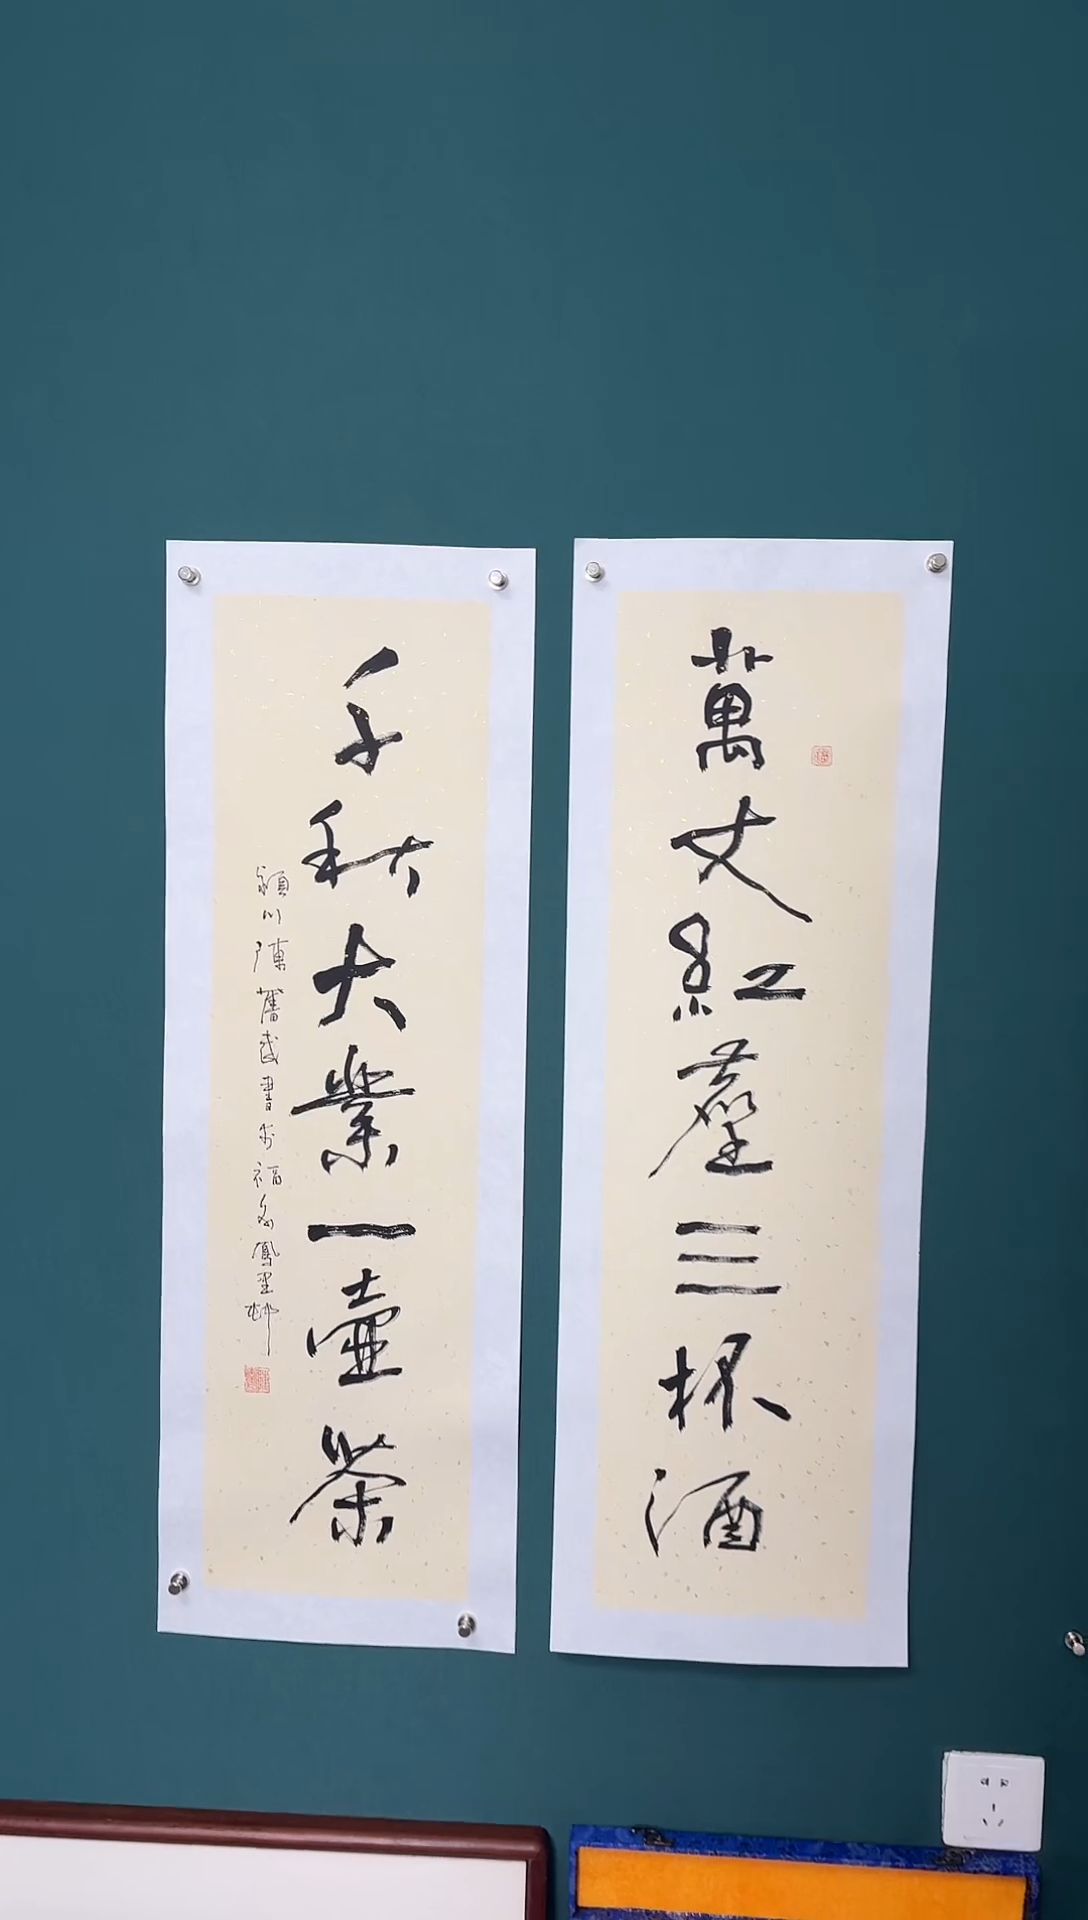 萬丈紅塵三杯酒
千秋大業一壺茶
潁川陳舊武書於福多鳳里邨